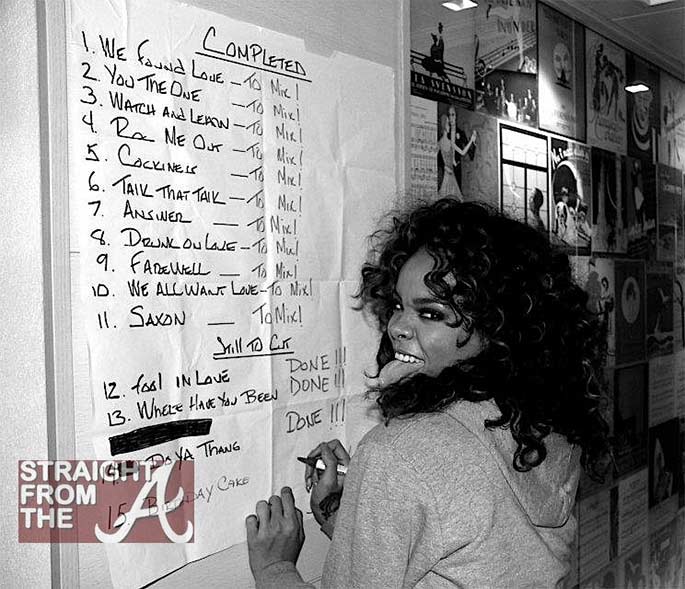 COMPLETED
1. WE FOUND LOVE - TO MIX!
2. YOU THE ONE - TO MIX!
3. WATCH AND LEARN - TO MIX!
4. ROC ME OUT - TO MIX!
5. COCKINESS - TO MIX!
6. TALK THAT TALK - TO MIX!
7. ANSWER - TO MIX!
8. DRUNK ON LOVE - TO MIX!
9. FAREWELL - TO MIX!
10. WE ALL WANT LOVE - TO MIX!
11. SAXON - TO MIX!
STILL TO CUT
12. FOOL IN LOVE DONE !!!
13. WHERE HAVE YOU BEEN DONE !!!
DONE !!!
DO YA THANG
15. BIRTHDAY CAKE
STRAIGHT
FROM
THE A